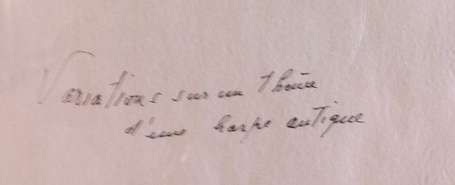 Variations sur un thème
d'une harpe antique